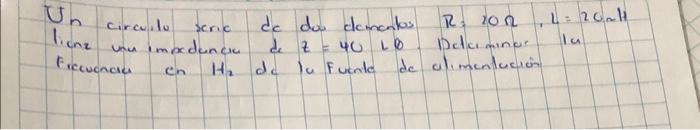 Un circuito serie de dos elementos R = 20Ω, L = 20mH
tiene una impedancia de z = 40 ∟θ Determinar la
Frecuencia en Hz de la Fuente de alimentación